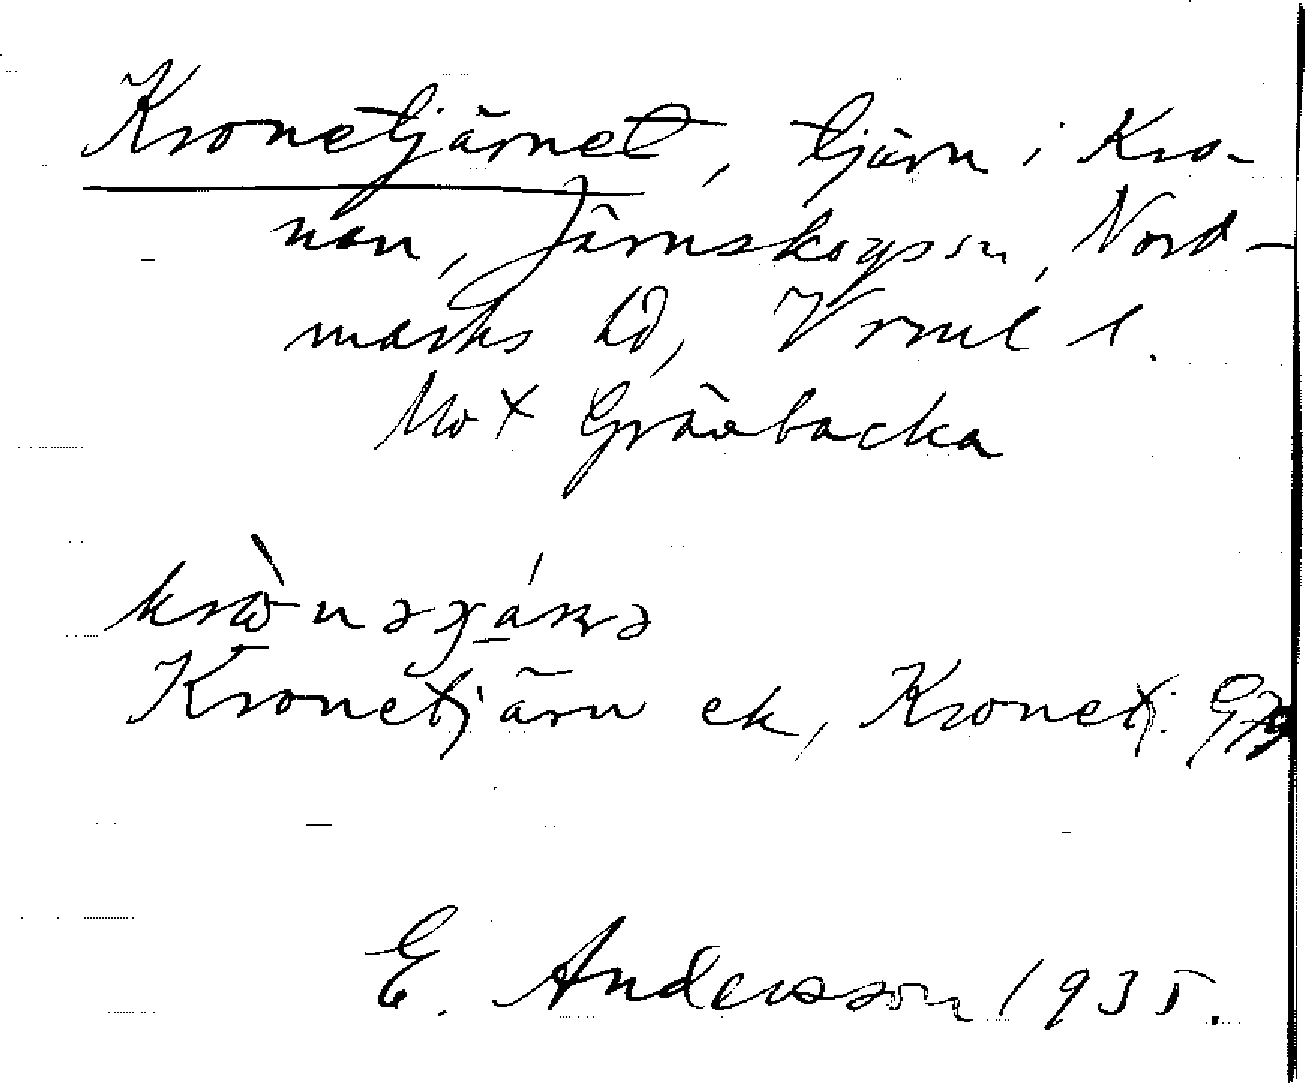 Kronetjärnet, tjärn i Kro-
nan, Järnskogs sn, Nord-
marks hd, Vrml l.
Mot Gräsbacka
Kronetjärn ek, Kronetj.
E. Andersson 1935.